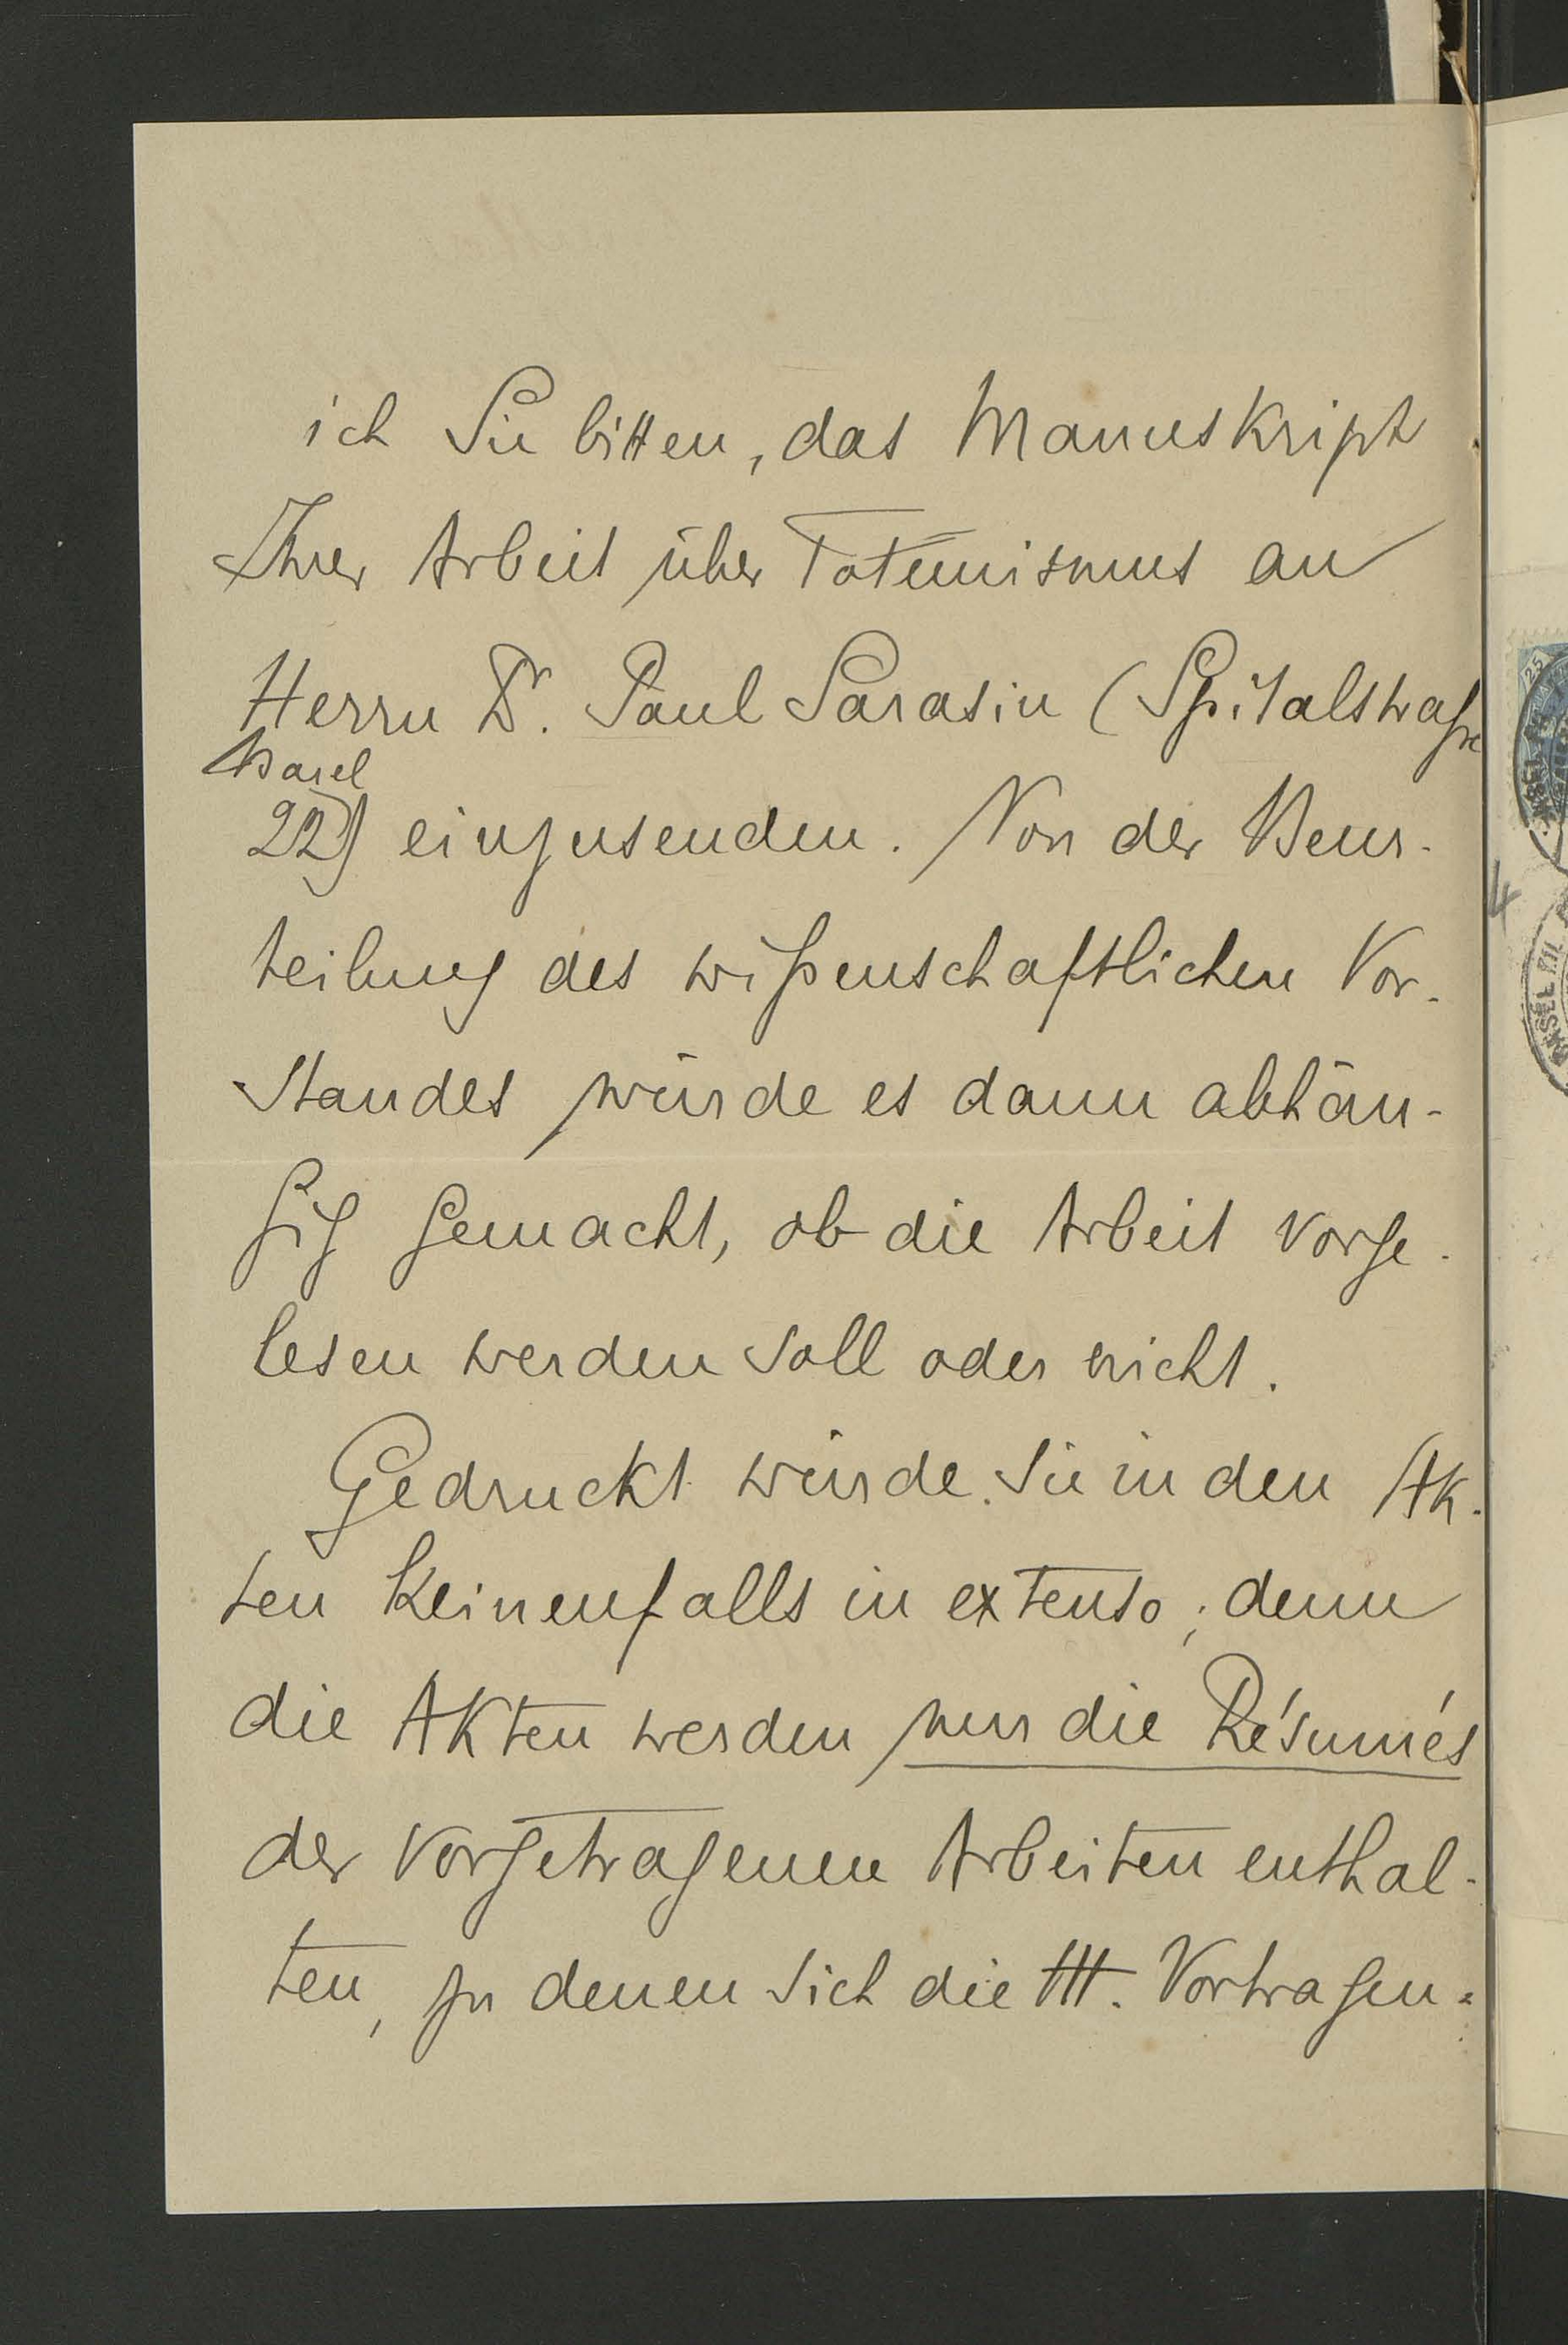 ich Sie bitten, das Manuskript
Ihrer Arbeit über Totemismus an
Herrn Dr. Paul Sarasin (Spitalstraße
Basel
22) einzusenden. Von der Beur-
teilung des wißenschaftlichen Vor-
standes würde es dann abhän-
gig gemacht, ob die Arbeit vorge-
lesen werden soll oder nicht.
Gedruckt würde sie in den Ak-
ten keinenfalls in extenso; denn
die Akten werden nur die Résumés
der vorgetragenen Arbeiten enthal-
ten, zu denen sich die Vortragen-
25
4
BASEL